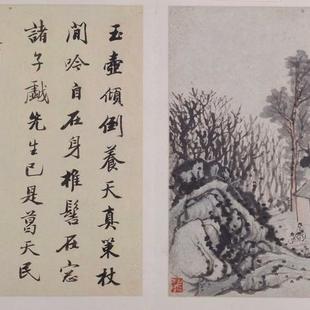 玉壺傾倒養天真策杖
閒吟自在身椎髻在窓
諸子戱先生已是葛天民